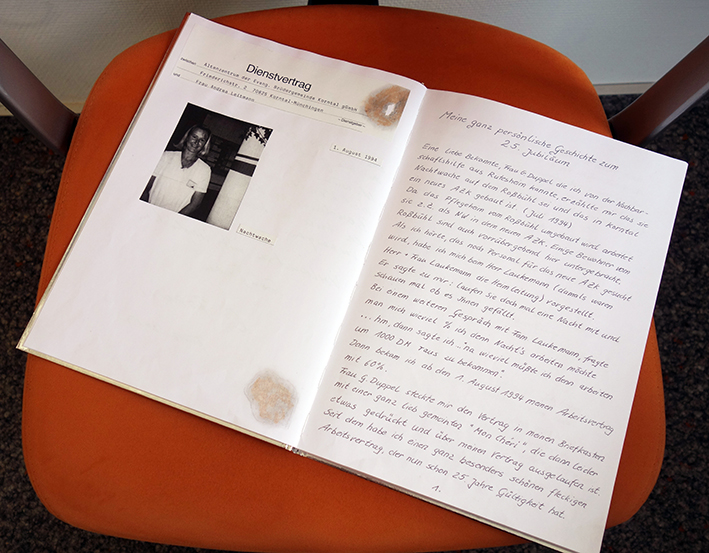 Dienstvertrag
zwischen Altenzentrum der Evang. Brüdergemeinde Korntal gGmbH
Friederichstr. 2, 70825 Korntal-Münchingen
- Dienstgeber -
und Frau Andrea Leitmann
1. August 1994
Nachtwache
Meine ganz persönliche Geschichte zum
25. Jubiläum
Eine liebe Bekannte, Frau G. Duppel, die ich von der Nachbar-
schaftshilfe aus Rutesheim kannte, erzählte mir das sie
Nachtwache auf dem Roßbühl sei und das in Korntal
ein neues AZK gebaut ist (Juli 1994)
Da das Pflegeheim vom Roßbühl umgebaut wird arbeitet
sie z.Z. als NW in dem neuen AZK. Einige Bewohner vom
Roßbühl sind auch vorrübergehend hier untergebracht.
Als ich hörte, das noch Personal für das neue AZK gesucht
wird, habe ich mich beim Herr Laukemann (damals waren
Herr + Frau Laukemann die Heimleitung) vorgestellt.
Er sagte zu mir: laufen Sie doch mal eine Nacht mit und
schauen mal ob es Ihnen gefällt.
Bei einem weiteren Gespräch mit Fam. Laukemann, fragte
man mich wieviel % ich denn Nacht's arbeiten möchte
... hm, dann sagte ich: "na wieviel müßte ich denn arbeiten
um 1000 DM raus zu bekommen".
Dann bekam ich ab den 1. August 1994 meinen Arbeitsvertrag
mit 60%.
Frau G. Duppel steckte mir den Vertrag in meinen Briefkasten
mit einer ganz lieb gemeinten "Mon Chéri", die dann leider
etwas gedrückt und über meinen Vertrag ausgelaufen ist.
Seit dem habe ich einen ganz besonders schönen fleckigen
Arbeitsvertrag, der nun schon 25 Jahre Gültigkeit hat.
1.